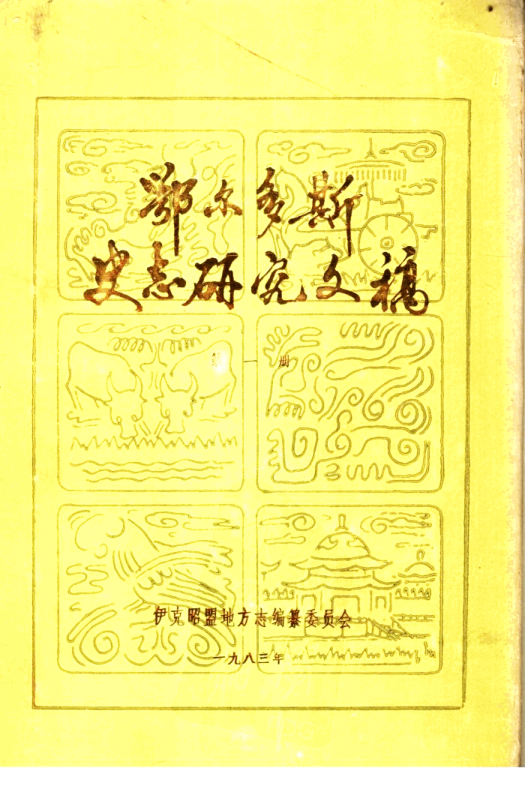 鄂尔多斯
史志研究文稿
一册
伊克昭盟地方志编纂委员会
一九八三年